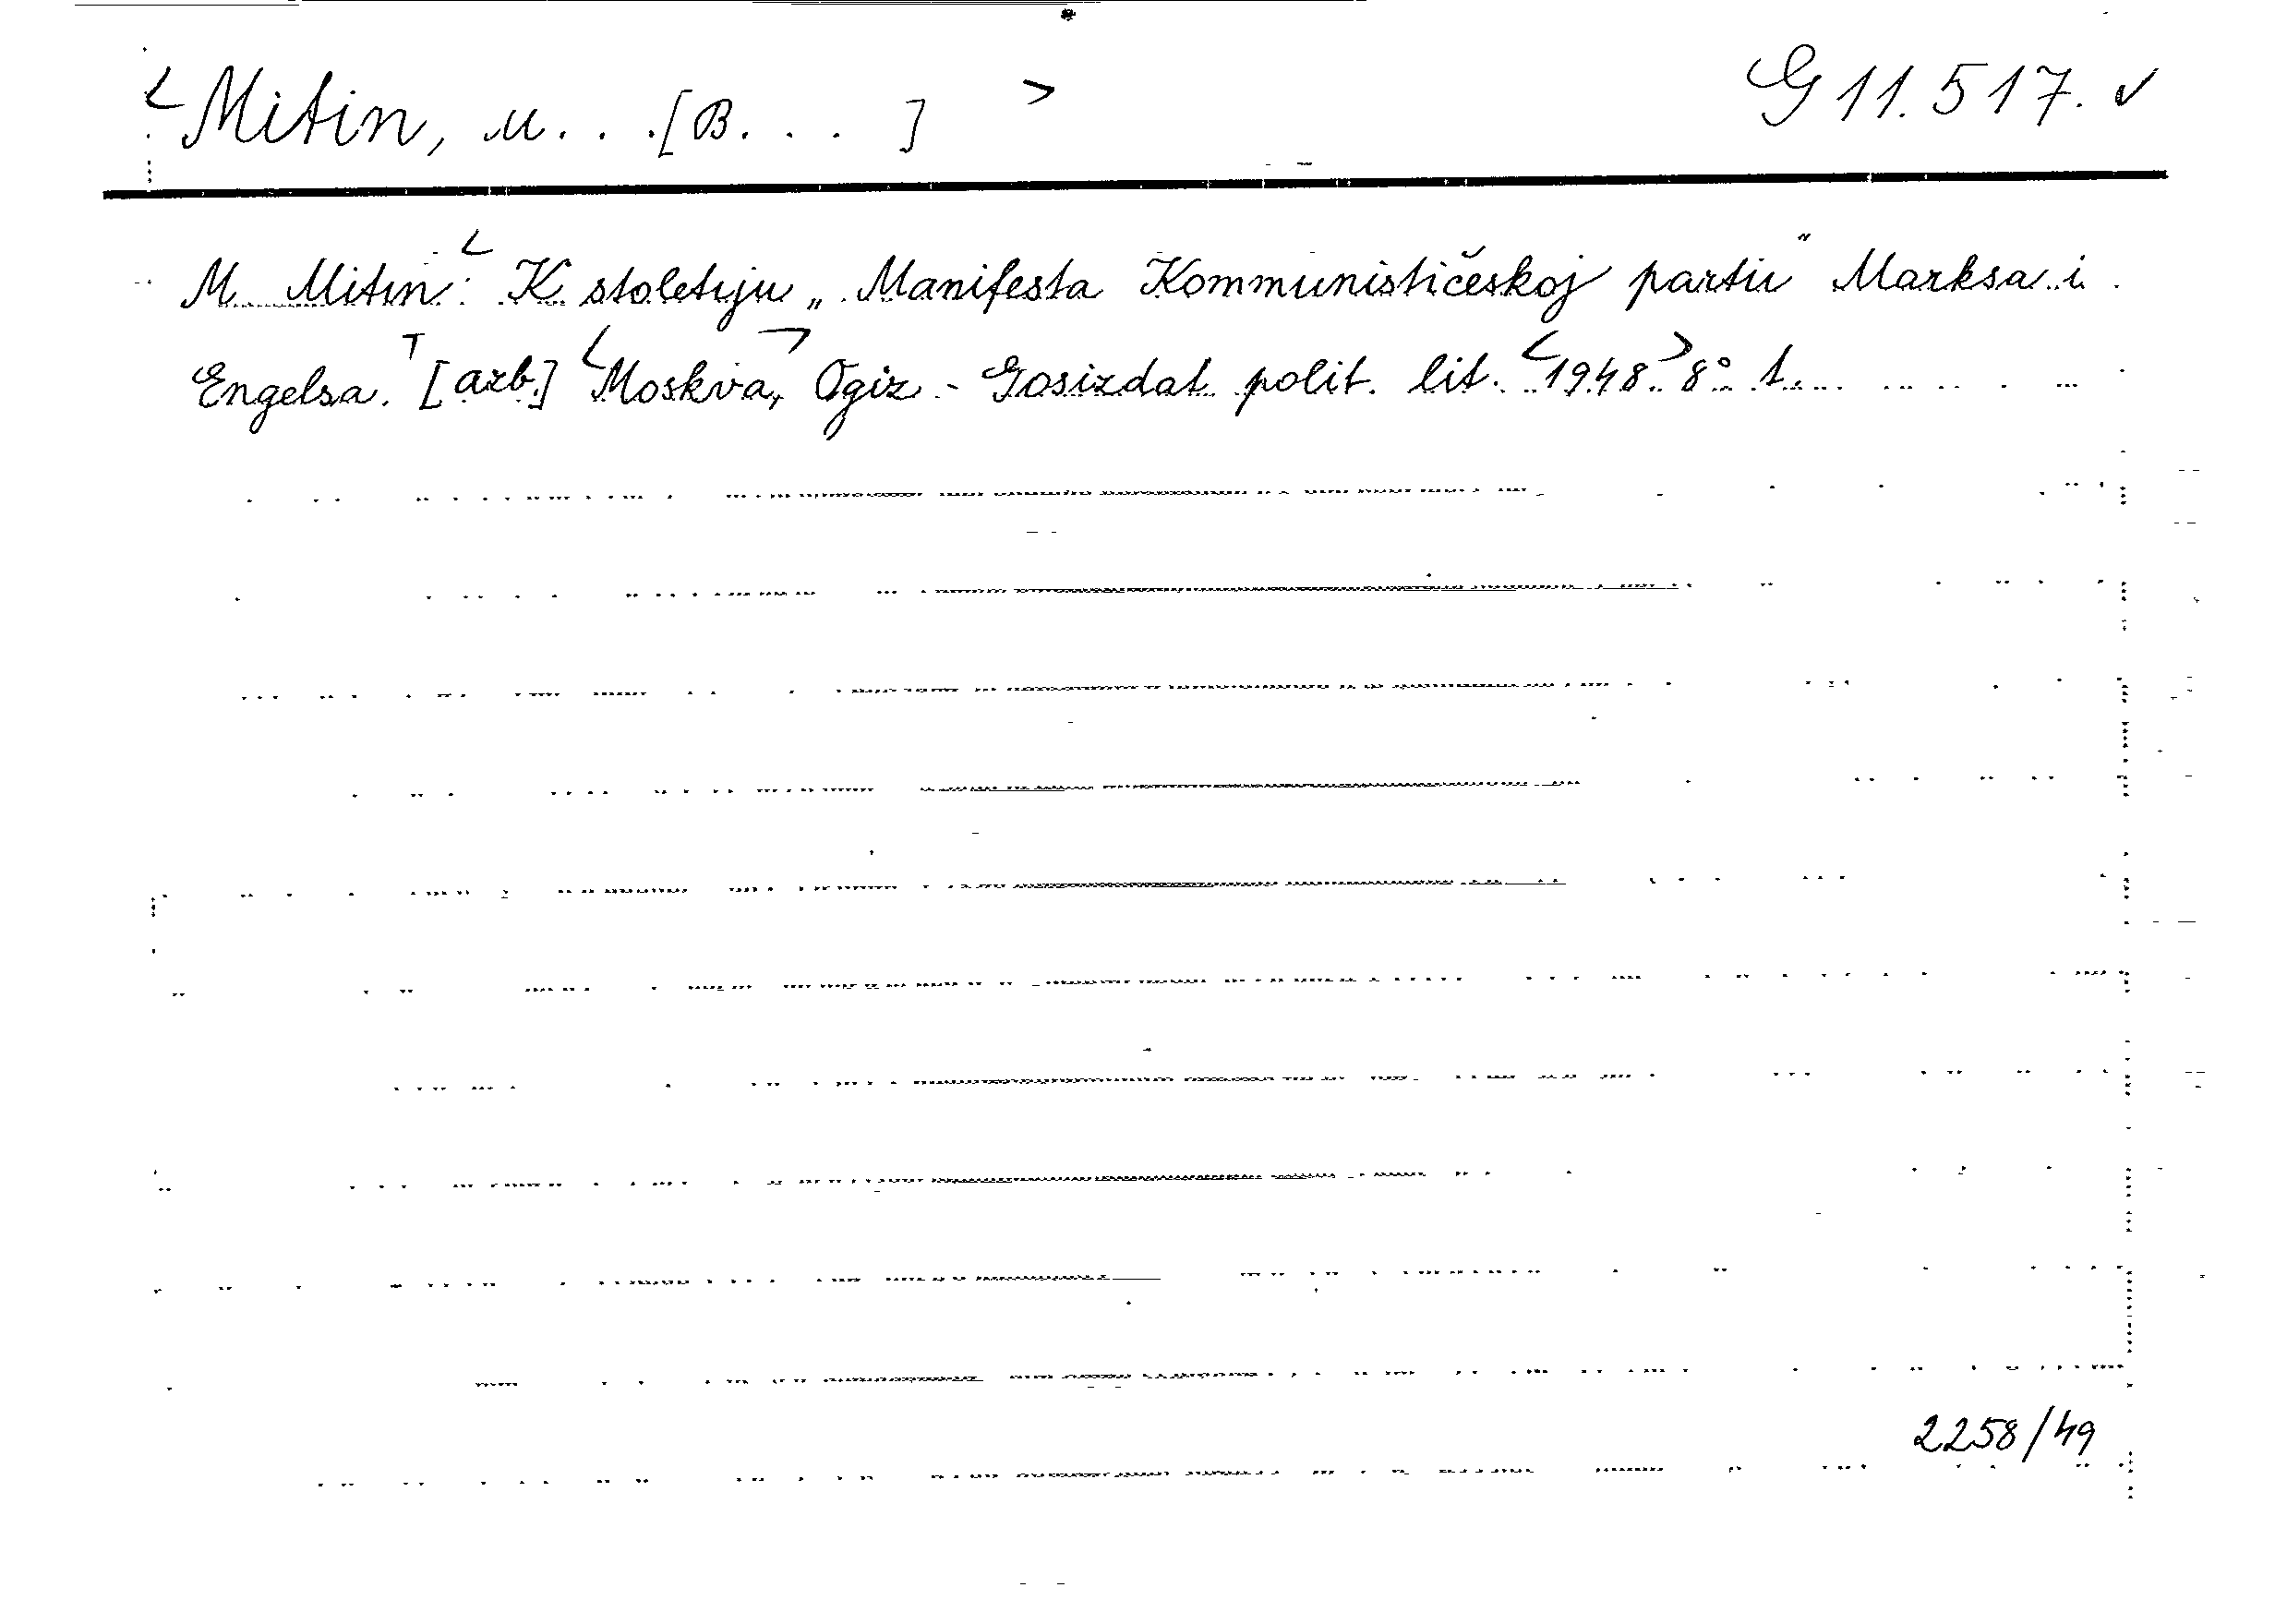 <Mitin, M. . . .[B. . . .] > G 11.517. ✓
M. Mitin: <K stoletiju „Manifesta Kommunističeskoj partii" Marksa i
Engelsa.> [azb.] <Moskva,> Ogiz - Gosizdat polit. lit. <1948.> 8° 1.
2258/49